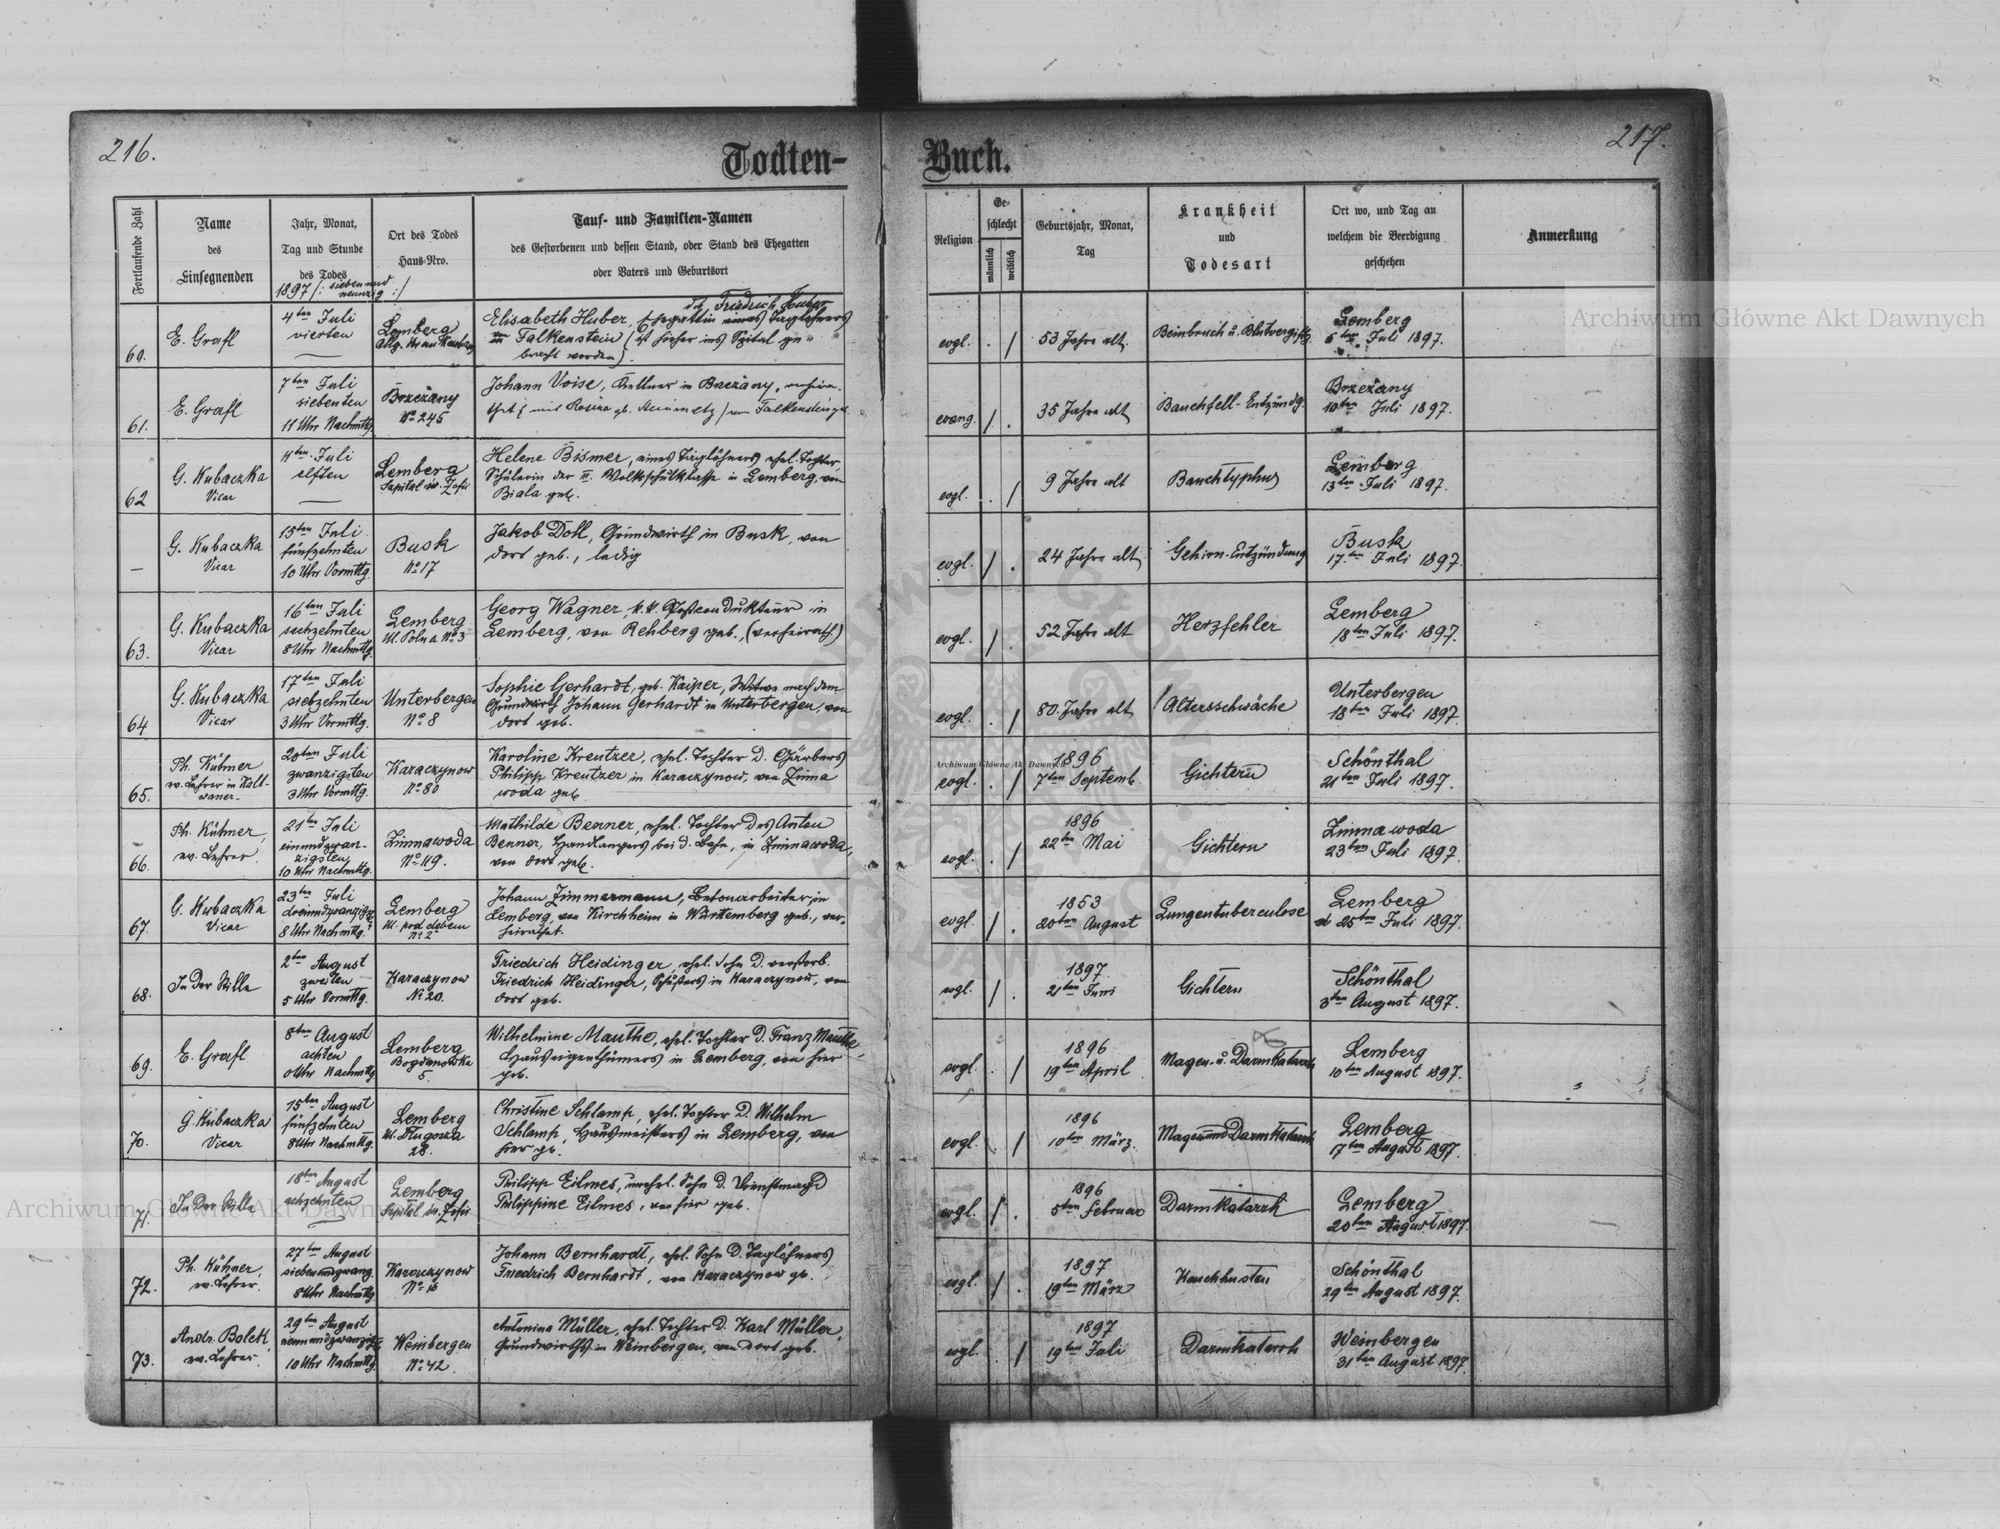 216.
Todten-
Buch.
217.
Fortlaufende Zahl
Name
des
Einsegnenden
Jahr, Monat,
Tag und Stunde
des Todes
1897 /: sieben und
neunzig :/
Ort des Todes
Haus-Nro.
Tauf- und Familien-Namen
des Gestorbenen und dessen Stand, oder Stand des Ehegatten
oder Vaters und Geburtsort
Religion
Ge-
schlecht
männlich
weiblich
Geburtsjahr, Monat,
Tag
Krankheit
und
Todesart
Ort wo, und Tag an
welchem die Beerdigung
geschehen
Anmerkung
60.
E. Grafl
4ten Juli
vierten
Lemberg
Allg.
des Friedrich Huber
Elisabeth Huber, Ehegattin eines Taglöhners
Falkenstein (ist hieher ins Spital ge-
bracht worden).
evgl.
. /
53 Jahre alt.
Beinbruch u. Blutvergiftg.
Lemberg
6ten Juli 1897.
61.
E. Grafl
7ten Juli
siebenten
11 Uhr Nachmttg.
Brzeżany
No 245
Johann Voise, Kellner in Brzeżany, verheira-
thet mit Rosina gb. von Falkenstein gb.
evang.
/ .
35 Jahre alt
Bauchfell-Entzündg.
Brzeżany
10ten Juli 1897.
62
G. Kubaczka
Vicar
11ten Juli
elften
Lemberg
Szpital św. Zofii
Helene Bismer, eines Taglöhners ehel. Tochter,
Schülerin der II. Volksschulklasse in Lemberg, von
Biala geb.
evgl.
. /
9 Jahre alt
Bauchtyphus
Lemberg
13ten Juli 1897.
—
G. Kubaczka
Vicar
15ten Juli
fünfzehnten
10 Uhr Vormttg.
Busk
No 17
Jakob Doll, Grundwirth in Busk, von
dort geb., ledig
evgl.
/ .
24 Jahre alt
Gehirn-Entzündung
Busk
17.ten Juli 1897.
63.
G. Kubaczka
Vicar
16ten Juli
sechzehnten
8 Uhr Nachmttg.
Lemberg
Ul. Polna No 3
Georg Wagner, k.k. Postcondukteur in
Lemberg, von Rehberg geb., (verheirath.)
evgl.
/ .
52 Jahre alt
Herzfehler
Lemberg
18ten Juli 1897.
64
G. Kubaczka
Vicar
17ten Juli
siebzehnten
3 Uhr Vormttg.
Unterbergen
No 8
Sophie Gerhardt, geb. Kaiper, Witwe nach dem
Grundwirth Johann Gerhardt in Unterbergen, von
dort geb.
evgl.
. /
80 Jahre alt
Altersschwäche
Unterbergen
18ten Juli 1897.
65.
Ph. Kühner
ev. Lehrer in Kalt-
waßer
20ten Juli
zwanzigsten
3 Uhr Vormttg.
Karaczynow
No 80
Karoline Kreutzer, ehel. Tochter d. Gärbers
Philipp Kreutzer in Karaczynow, von Zimna
woda geb.
evgl.
. /
1896
7ten Septemb.
Gichtern
Schönthal
21ten Juli 1897.
66.
Ph. Kühner,
ev. Lehrer.
21ten Juli
einundzwan-
zigsten
10 Uhr Nachmttg.
Zimnawoda
No 119.
Mathilde Benner, ehel. Tochter des Anton
Benner, Handlangers bei d. Bahn, in Zimnawoda,
von dort geb.
evgl.
. /
1896
22ten Mai
Gichtern
Zimnawoda
23ten Juli 1897.
67.
G. Kubaczka
Vicar
23ten Juli
dreiundzwanzigst.
8 Uhr Nachmttg.
Lemberg
Ul. pod dębem
No 2
Johann Zimmermann, Betonarbeiter in
Lemberg, von Kirchheim in Würtemberg geb., ver-
heirathet.
evgl.
/ .
1853
20ten August
Lungentuberculose
Lemberg
25ten Juli 1897.
68.
In der Stille
2ten August
zweiten
5 Uhr Vormttg.
Karaczynow
No 20.
Friedrich Heidinger, ehel. Sohn d. verstorb.
Friedrich Heidinger, Schusters in Karaczynow, von
dort geb.
evgl.
/ .
1897.
21ten Juni
Gichtern
Schönthal
3ten August 1897.
69.
E. Grafl
8ten August
achten
0 Uhr Nachmttg
Lemberg
Bogdanowka
5.
Wilhelmine Mauthe, ehel. Tochter d. Franz Mauthe,
Hauseigenthümers in Lemberg, von hier
geb.
evgl.
. /
1896
19ten April
Magen- u. Darmkatarrh
Lemberg
10ten August 1897.
70.
G. Kubaczka
Vicar
15ten August
fünfzehnten
8 Uhr Nachmttg.
Lemberg
Ul. Długosza
28.
Christine Schlamp, ehel. Tochter d. Wilhelm
Schlamp, Hausmeisters in Lemberg, von
hier gb.
evgl.
. /
1896
10ten März.
Magen und Darmkatarrh
Lemberg
17ten August 1897.
71.
In der Stille
18ten August
achzehnten
Lemberg
Szpital św. Zofii
Philipp Eilmes, unehel. Sohn d. Dienstmagd
Philippine Eilmes, von hier geb.
evgl.
/ .
1896
5ten Februar
Darmkatarrh
Lemberg
20ten August 1897.
72.
Ph. Kühner,
ev. Lehrer.
27ten August
siebenundzwanz.
8 Uhr Nachmttg.
Karaczynow
No 16
Johann Bernhardt, ehel. Sohn d. Taglöhners
Friedrich Bernhardt, von Karaczynow gb.
evgl.
/ .
1897
19ten März
Keuchhusten
Schönthal
29ten August 1897.
73.
Andr. Bolek,
ev. Lehrer.
29ten August
neunundzwanzigst.
10 Uhr Nachmttg.
Weinbergen
No 42.
Antonina Müller, ehel. Tochter d. Karl Müller,
Grundwirths in Weinbergen, von dort geb.
evgl.
. /
1897
19ten Juli
Darmkatarrh
Weinbergen
31ten August 1897.
Archiwum Główne Akt Dawnych
Archiwum Główne Akt Dawnych
Archiwum Główne Akt Dawnych